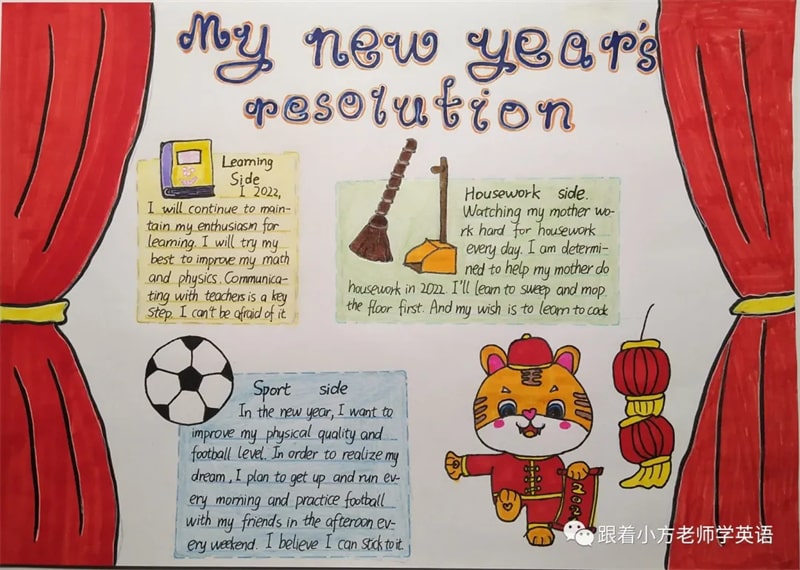 My new year's
resolution
Learning
Side
I 2022,
I will continue to main-
tain my enthusiasm for
learning. I will try my
best to improve my math
and physics. Communica-
ting with teachers is a key
step. I can't be afraid of it
Housework side.
Watching my mother wo-
rk hard for housework
every day. I am determi-
ned to help my mother do
housework in 2022. I'll learn to sweep and mop
the floor first. And my wish is to learn to cook
Sport side
In the new year, I want to
improve my physical quality and
football level. In order to realize my
dream, I plan to get up and run ev-
ery morning and practice football
with my friends in the afteroon ev-
ery weekend. I believe I can stick to it.
跟着小方老师学英语